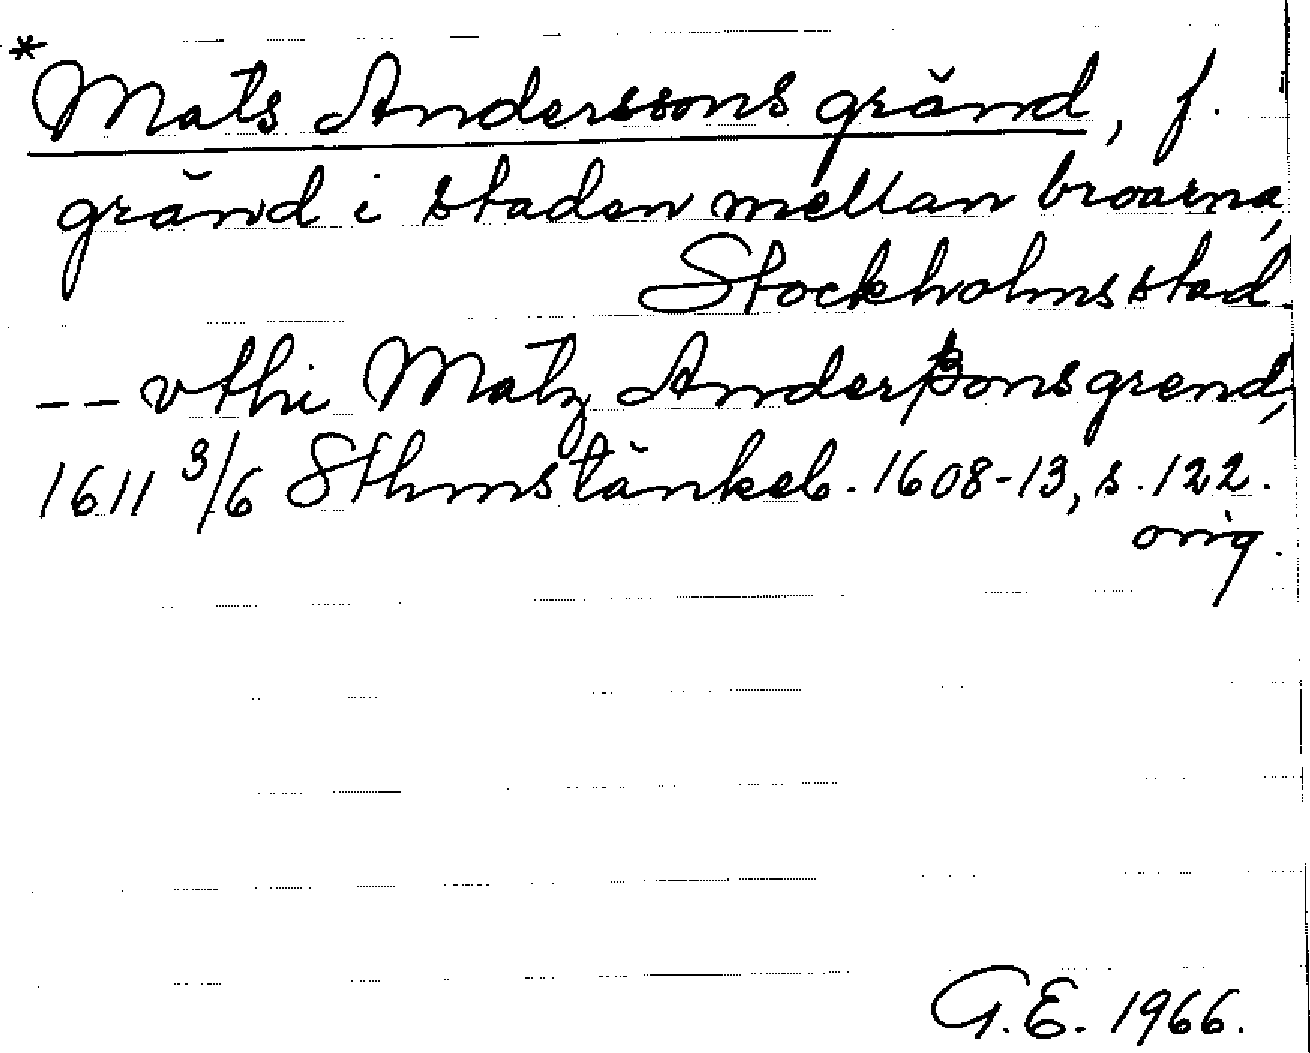 *Mats Anderssons gränd, f.
gränd i staden mellan broarna,
Stockholms stad.
-- vthi Matz Anderßons grend,
1611 3/6 Sthmstänkeb. 1608-13, s. 122.
orig.
G.E. 1966.